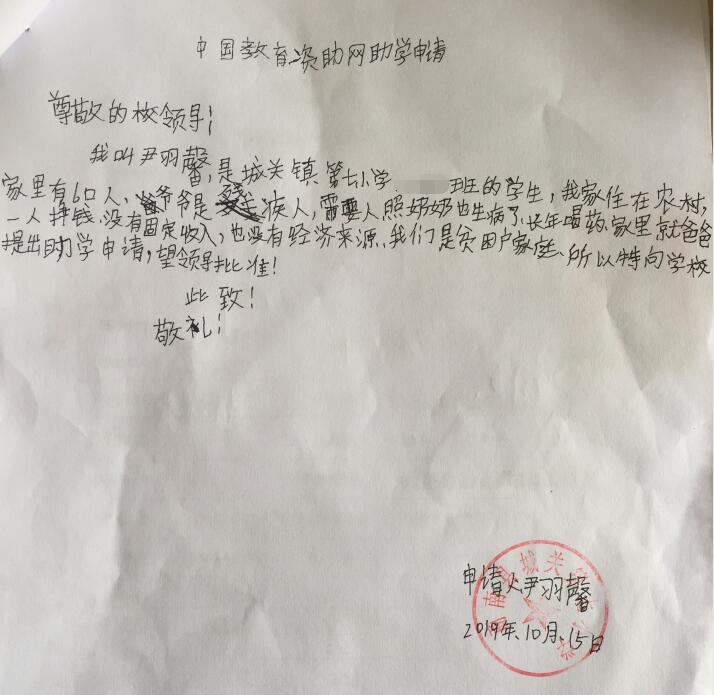 中国教育资助网助学申请
尊敬的校领导！
我叫尹羽馨，是城关镇第七小学 班的学生，我家住在农村，
家里有6口人，爷爷是残疾人，需要人照奶奶也生病了.长年喝药.家里就爸爸
一人挣钱.没有固定收入，也没有经济来源.我们是贫困户家庭、所以特向学校
提出助学申请，望领导批准！
此致！
敬礼！
申请人尹羽馨
2019年.10月.15日
城关镇